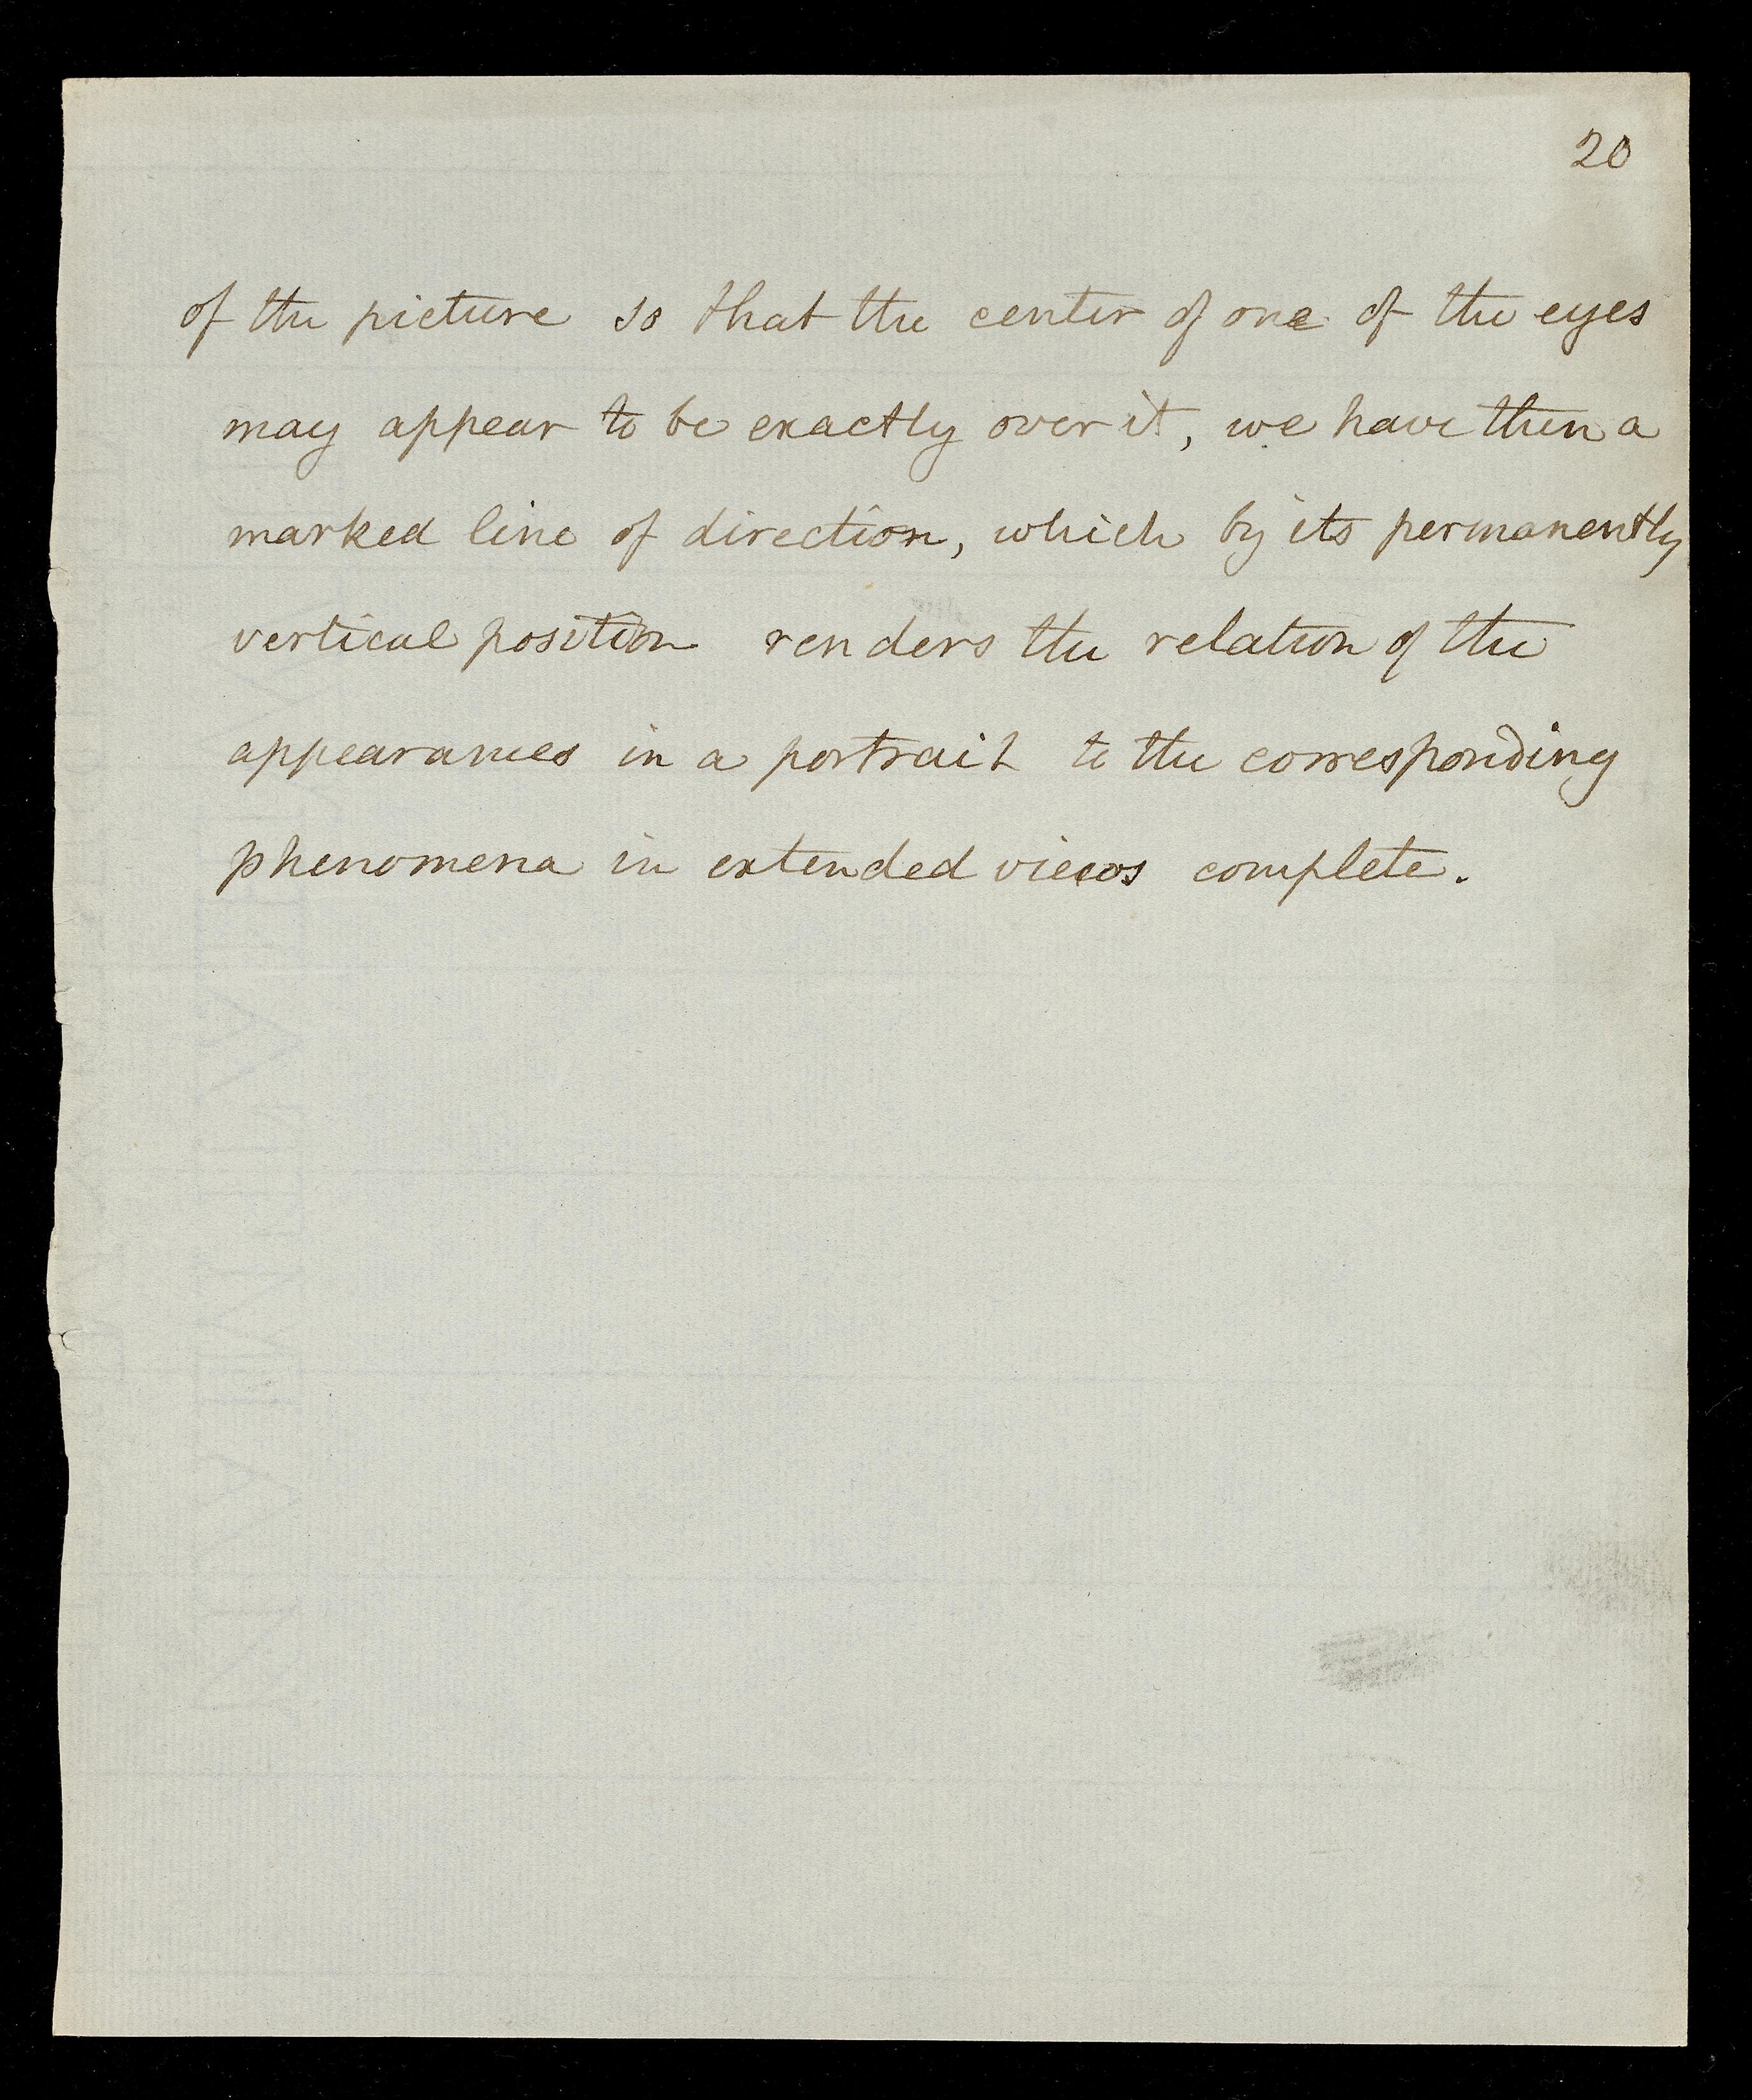 20
of the picture so that the center of one of the eyes
may appear to be exactly over it, we have then a
marked line of direction, which by its permanently
vertical position renders the relation of the
appearances in a portrait to the corresponding
phenomena in extended views complete.